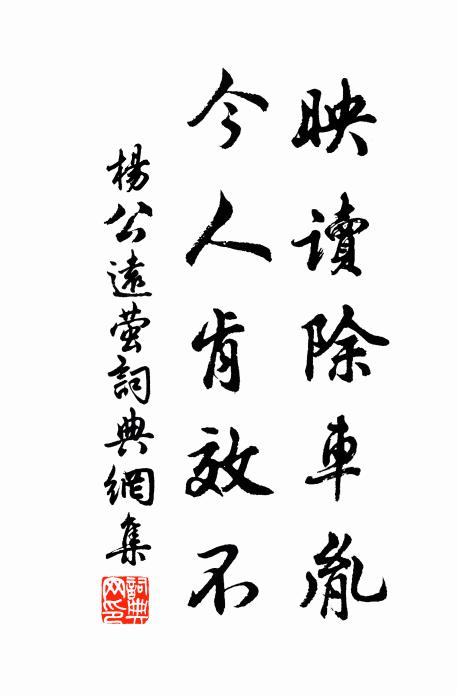 映讀除車胤
今人肯效不
楊公遠螢詞典網集
詞典网印